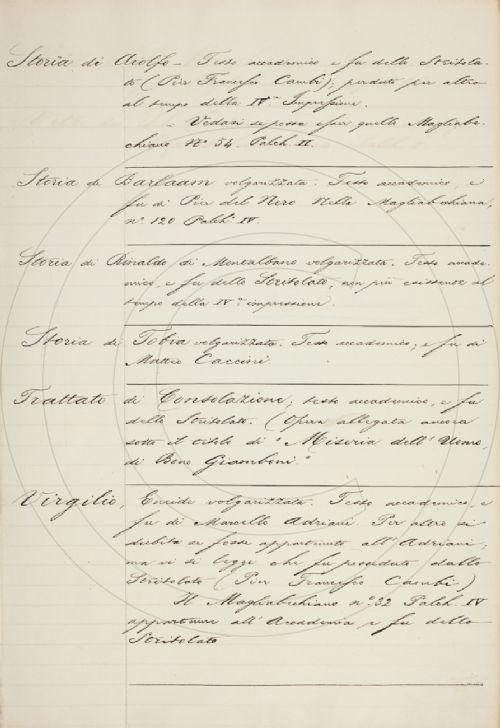 Storia di Aiolfo - Testo accademico e fu dello Stritola-
to (Pier Francesco Cambi); perduto per altro
al tempo della IVª Impressione.
- Vedasi se possa esser quello Magliabe-
chiano Nº 54. Palch. II.
Storia di Barlaam volgarizzata. Testo accademico, e
fu di Pier del Nero Nella Magliabechiana,
nº 120 Palch. IV.
Storia di Rinaldo di Montalbano volgarizzata. Testo accade-
mico, e fu dello Stritolato, non più esistente al
tempo della IVª impressione.
Storia di Tobia volgarizzata. Testo accademico; e fu di
Matteo Caccini.
Trattato di Consolazione; testo accademico, e fu
dello Stritolato. (Opera allegata ancora
sotto il titolo di "Miseria dell' Uomo,
di Bono Giamboni"
Virgilio, Eneide volgarizzata. Testo accademico, e
fu di Marcello Adriani. Per altro si
dubita se fosse appartenuto all' Adriani;
ma vi si legge che fu posseduto dallo
Stritolato (Pier Francesco Cambi)
Il Magliabechiano nº 32 Palch. IV
appartenne all' Accademia e fu dello
Stritolato